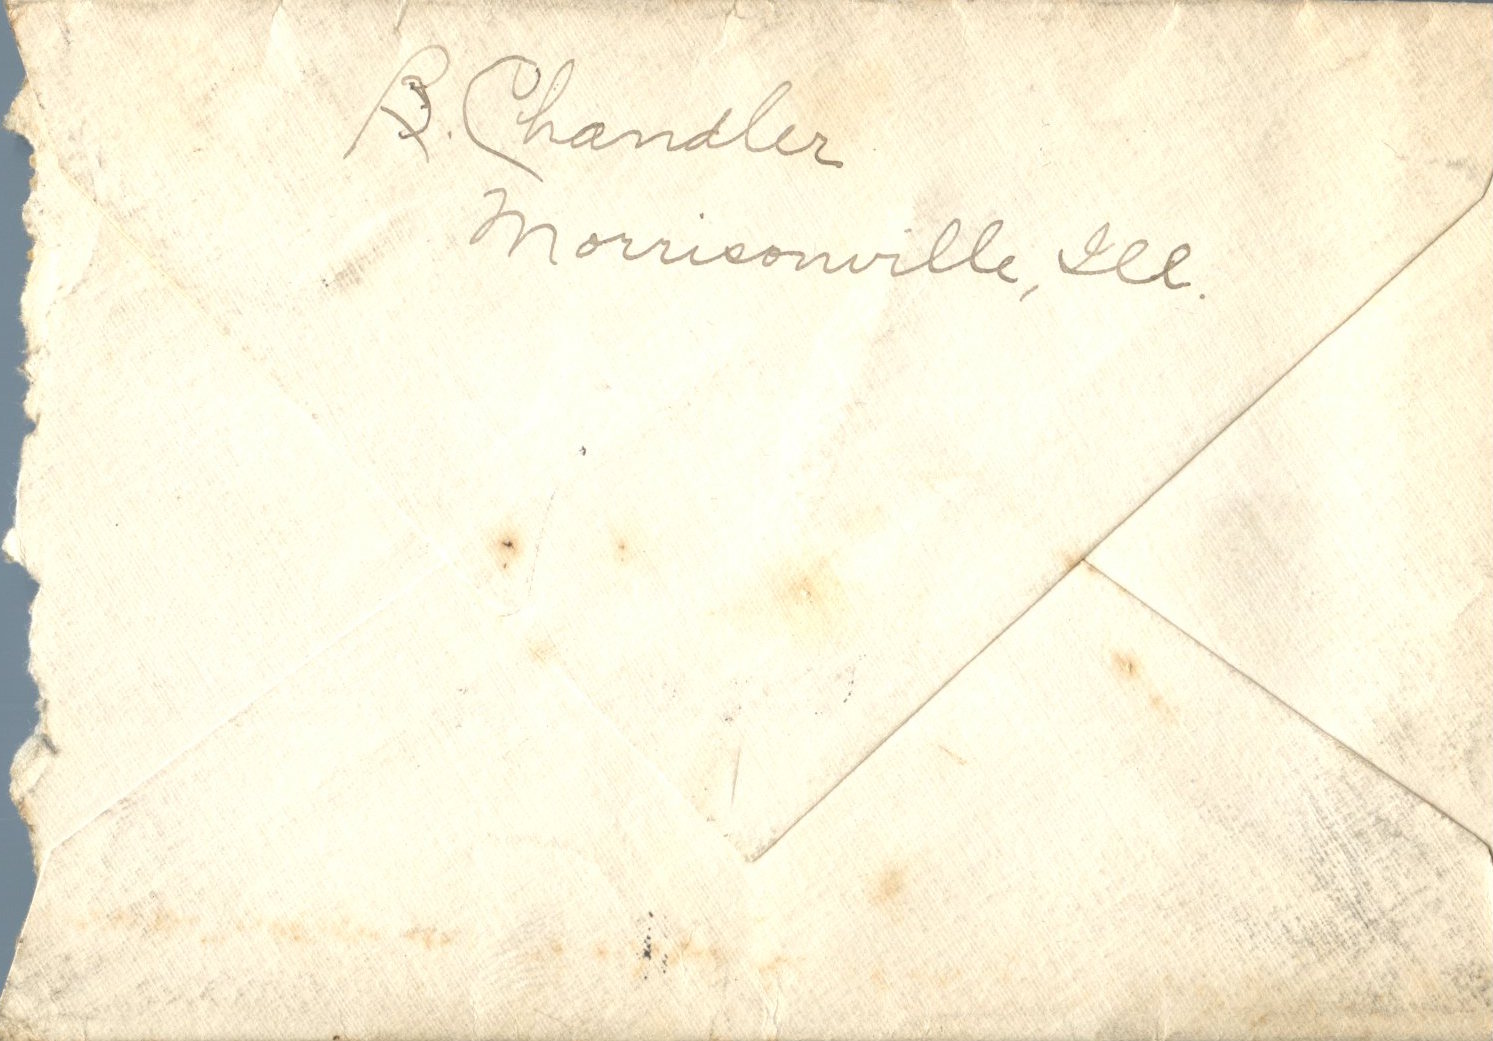 B. Chandler
Morrisonville, Ill.